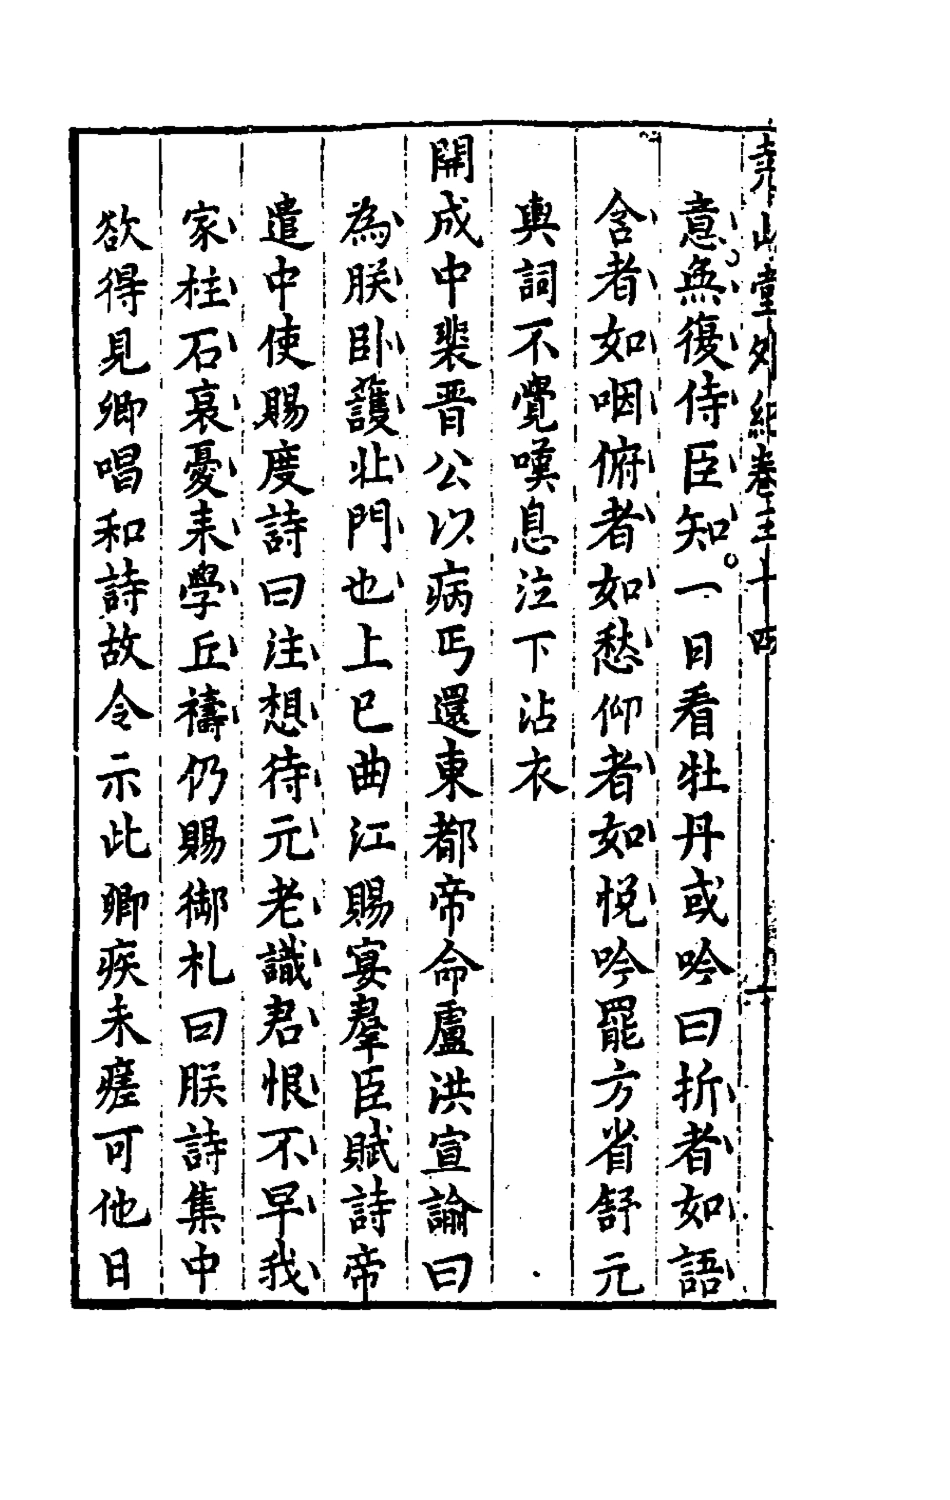 堯山堂外紀卷三十四
意無復侍臣知一日看牡丹或吟曰折者如語
含者如咽俯者如愁仰者如悅吟罷方省舒元
輿詞不覺嘆息泣下沾衣
開成中裴晉公以病丐還東都帝命盧洪宣諭曰
為朕卧護北門也上巳曲江賜宴羣臣賦詩帝
遣中使賜度詩曰注想待元老識君恨不早我
家柱石衰憂來學丘禱仍賜御札曰朕詩集中
欲得見卿唱和詩故令示此卿疾未瘥可他日